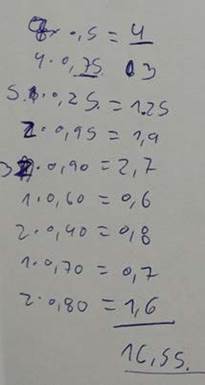 8 · 0,5 = 4
4 · 0,75. 3
5. · 0,25. = 1.25
2 · 0,95 = 1,9
3 · 0,90 = 2,7
1 · 0,60 = 0,6
2 · 0,40 = 0,8
1 · 0,70 = 0,7
2 · 0,80 = 1,6
16,55.